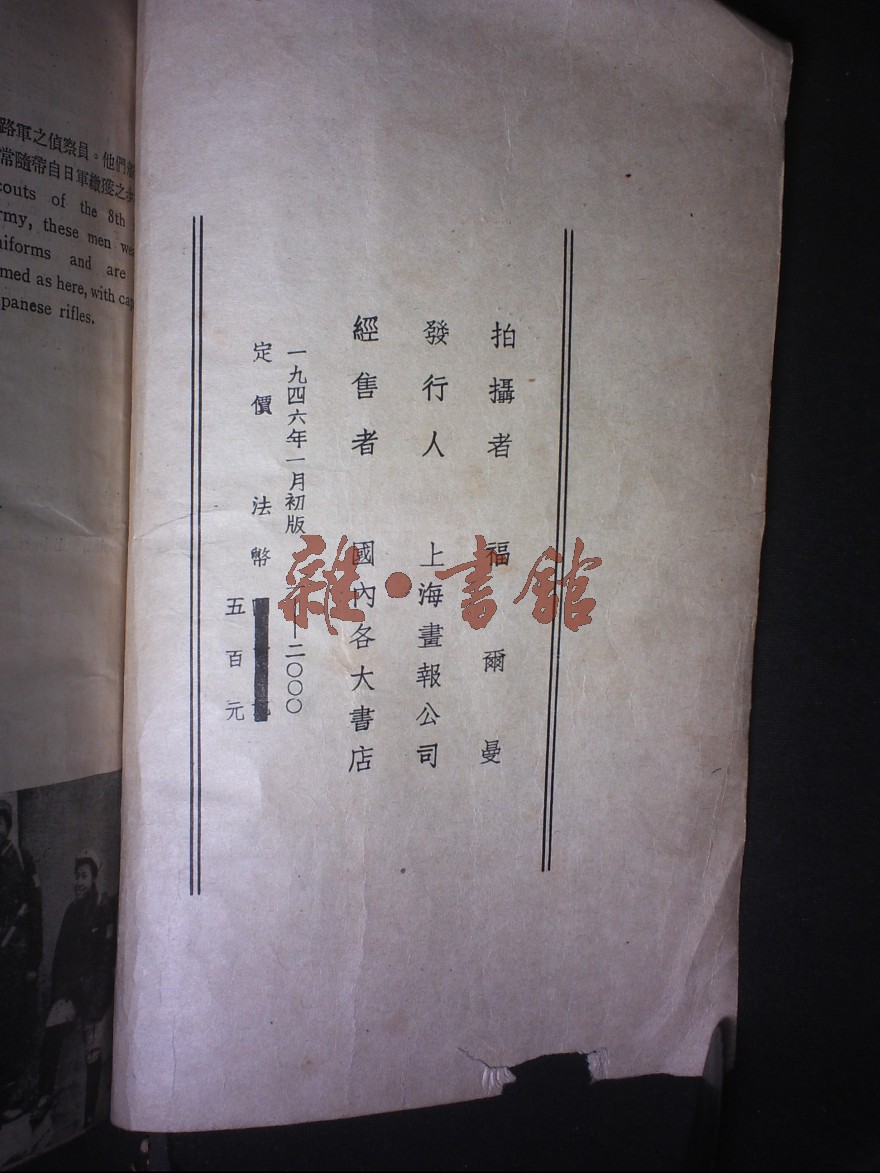 拍攝者 福爾曼
發行人 上海畫報公司
經售者 國內各大書店
一九四六年一月初版 一—二〇〇〇
定價 法幣
五百元
路軍之偵察員。他們
常隨帶自日軍繳獲之
couts of the 8th
rmy, these men
niforms and are
med as here, with
panese rifles.
雜·書館